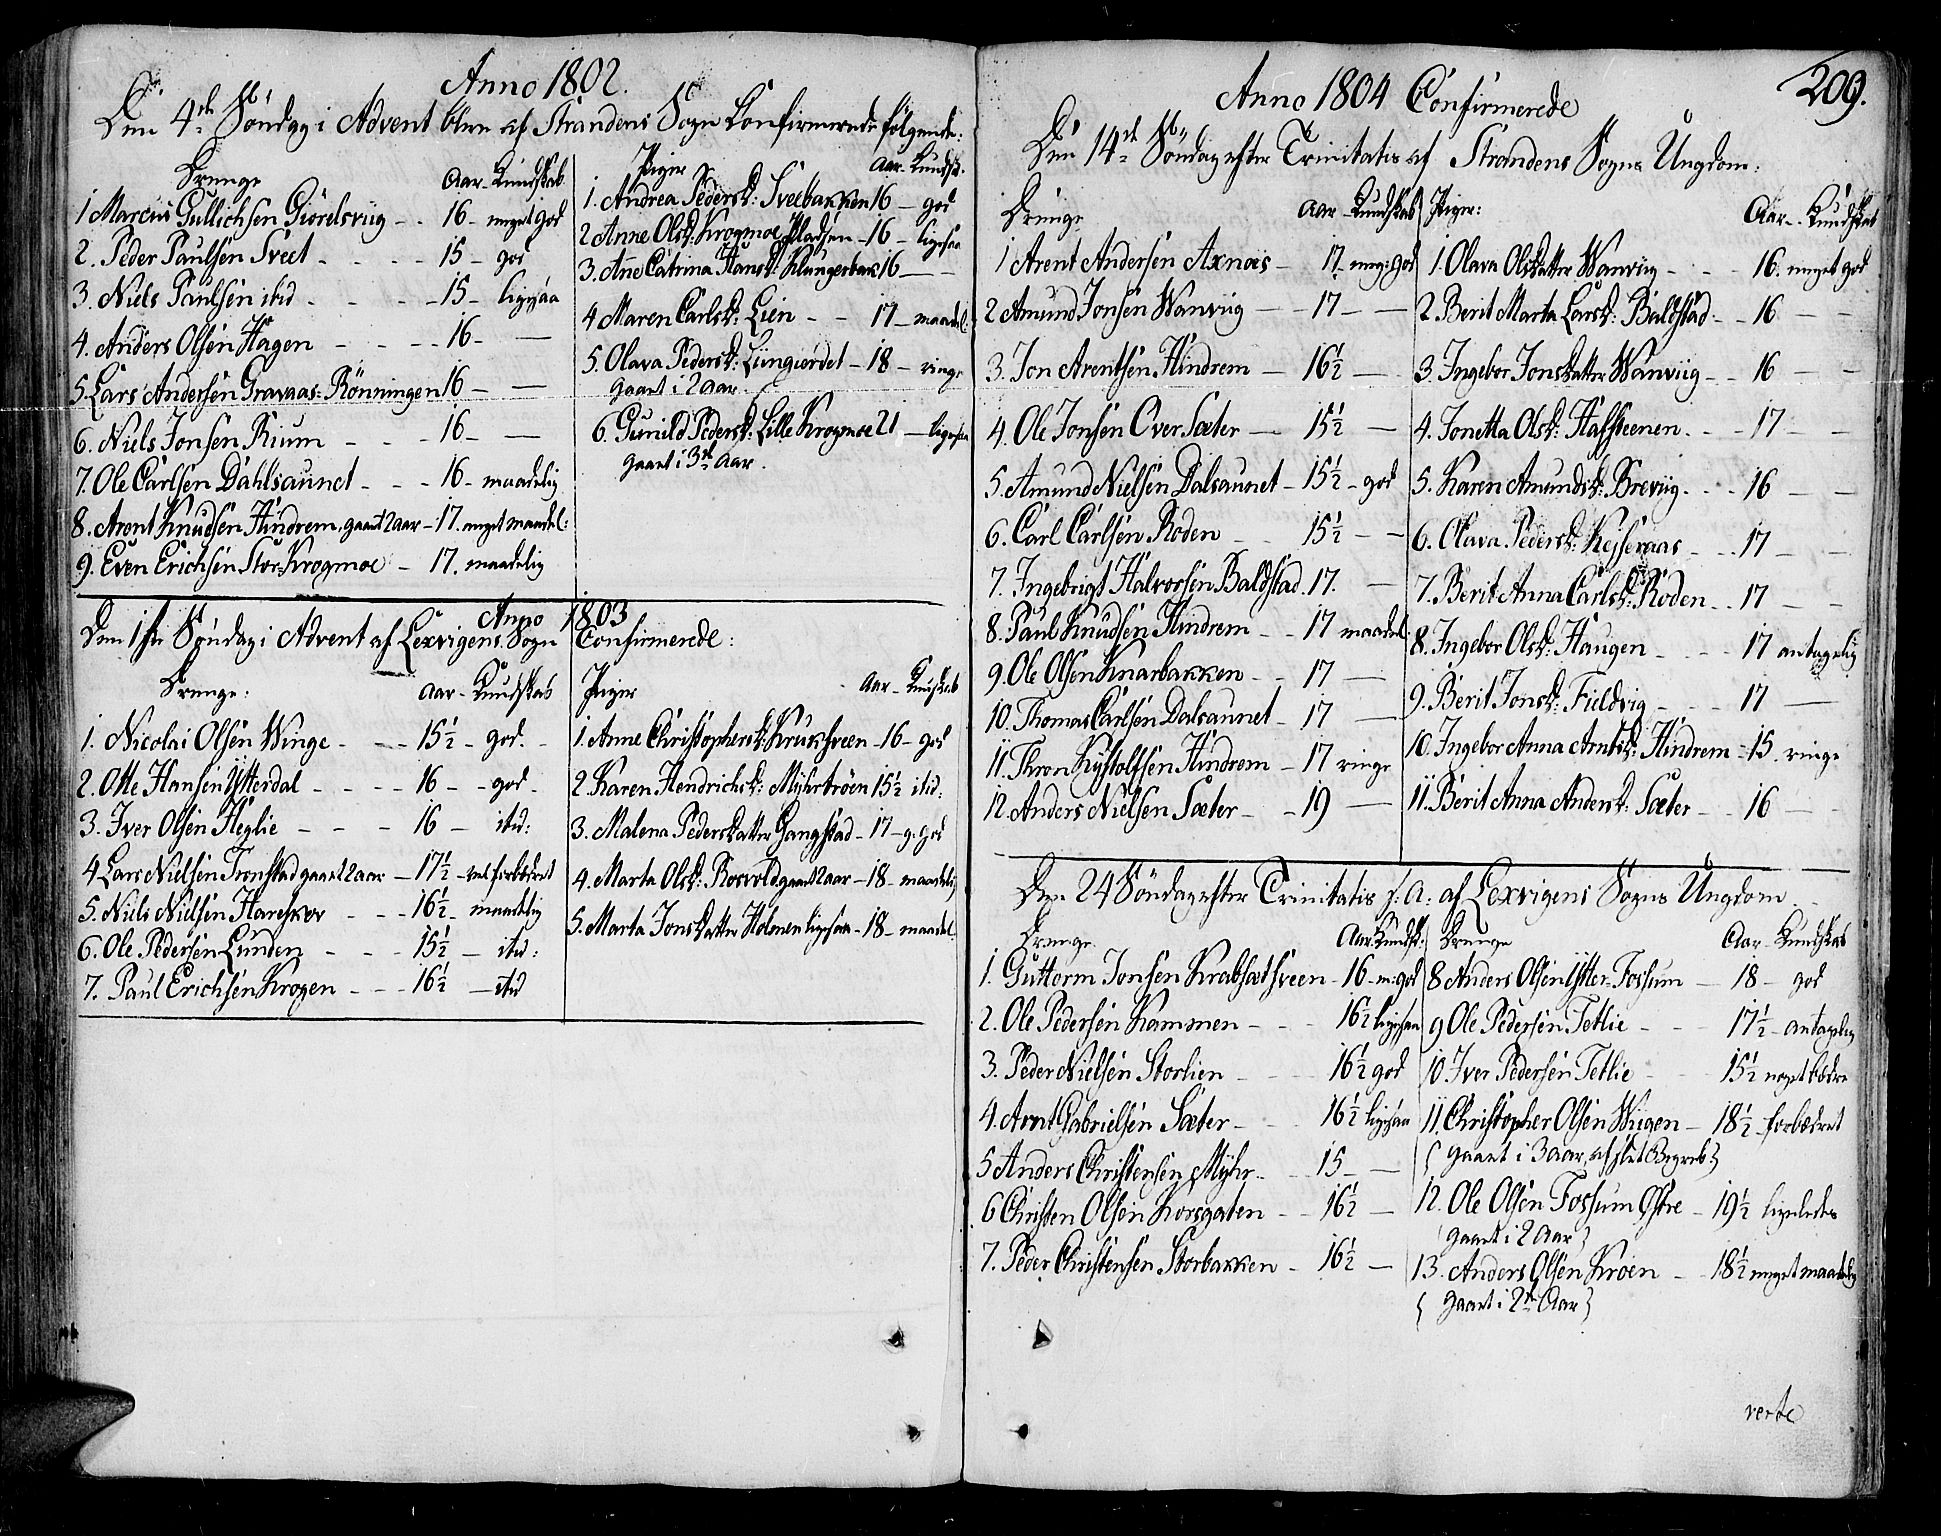 Anno 1802.
Den 4de Söndag i Advent blev af Strandens Sogn Confirmerede følgende:
Drenge Aar - Kundskab
1 Marcus Gullichsen Giörelsviig - - 16 - meget god
2. Peder Paulsen Sveet - - - - 15 - god
3. Niels Paulsen itid - - - - 15 - ligesaa
4. Anders Olsen Hagen - - - - 16 - —
5. Lars Andersen Gravaas: Rönningen 16 - —
6. Niels Jonsen Rium - - - 16 - —
7. Ole Carlsen Dahlsaunet - - - 16 - maadelig
8. Arent Knudsen Hindrem, gaaet 2 aar - 17. meget maadel:
9. Even Erichsen Stor-Krogmoe - 17. maadelig
Piger Aar - Kundsk:
1. Andrea Pedersd: Sveebakken 16 - god
2 Anne Olsd: Krogmoe Pladsen - 16 - ligesaa
3. Añe Catrina Hansd: Klungerbak 16 - —
4 Maren Carlsd: Lien - - 17 - maadel:
5. Olava Pedersd: Liingierdet - 18 - ringe
gaaet i 2 aar.
6. Gunild Pedersd: Lille Krogmoe 21 - ligesaa
gaaet i 3de Aar.
Anno 1803
Den 1ste Söndag i Advent af Lexvigens Sogn Confirmerede:
Drenge: Aar - Kundskab
1. Nicolai Olsen Winge - - - 15½ - god. -
2. Otte Hansen Ytterdal - - - - 16 - - god -
3. Iver Olsen Heglie - - - 16 - itid:
4 Lars Nielsen Tronstad gaaet 2 aar - 17½ - vel forbedret
5. Niels Nielsen Hareskor - - - 16½ - maadelig
6. Ole Pedersen Lunden - - - 15½ - itid:
7. Paul Erichsen Krogen - - - 16½ - itid
Piger Aar - Kundskab
1. Anne Christophersd: Kruksveen - 16 - god
2. Karen Hendrichsd: Myhrtröen 15½ itid:
3. Malena Pedersdatter Gangstad - 17 - g. god
4. Marta Olsd: Rosvold gaaet 2 aar - 18 - maadelig
5. Marta Jonsdatter Holmen ligesaa - 18 - maadel:
209.
Anno 1804 Confirmerede
Den 14de Söndag efter Trinitatis af Strandens Sogns Ungdom:
Drenge Aar - Kundskab
1 Arent Andersen Axnæs - 17. meg: god
2 Amund Jonsen Wanviig - - 17 - —
3. Jon Arentsen Hindrem - 16½ —
4. Ole Jonsen Over Sæter - 15½ —
5. Amund Nielsen Dalsaunet - 15½ - god
6. Carl Carlsen Roden - - 15½ - —
7. Ingebrigt Halvorsen Baldstad 17. —
8. Paul Knudsen Hindrem - - 17 maadel:
9. Ole Olsen Knarbakken - - 17 —
10. Thomas Carlsen Dalsaunet - 17 —
11. Thron Kystolfsen Hindrem - 17 ringe
12. Anders Nielsen Sæter - - 19 —
Piger: Aar - Kundskab
1. Olava Olsdatter Wanviig - - - 16. meget god
2. Berit Marta Larsd: Baldstad - - 16 - —
3. Ingebor Jonsdatter Wanviig - - 16 - —
4. Jonetta Olsd: Hafsteenen. - - 17 —
5. Karen Amundsd: Breviig. - - 16 - —
6. Olava Pedersd: Kejseraas - - - 17 - —
7. Berit Anna Carlsd: Roden - - 17 - —
8. Ingebor Olsd: Haugen - - - - 17 antagelig
9. Berit Jonsd: Fieldvig - - - 17 —
10. Ingebor Anna Arntsd: Hindrem - 15. ringe
11. Berit Anna Andersd: Sæter - - 16 —
Den 24 Söndag efter Trinitatis s: a: af Lexvigens Sogns Ungdom -
Drenge Aar Kundsk:
1. Guttorm Jonsen Krabsætsveen - 16 - m: god
2. Ole Pedersen Kammen - - - 16½ ligesaa
3. Peder Nielsen Storlien - - - 16½ god
4. Arnt Gabrielsen Sæter - - - 16½ ligesaa
5 Anders Christensen Myhr - - 15 - —
6 Christen Olsen Korsgaten - - 16½ —
7. Peder Christensen Storbakken - 16½ —
Drenge Aar - Kundskab
8 Anders Olsen Ytter-Fossum - 18 - god
9 Ole Pedersen Tetlie - - - 17½ - antagelig
10. Iver Pedersen Tetlie - - - 15½ noget bedre
11. Christopher Olsen Wiigen - 18½ - forbedret
{ gaaet i 3 aar, af slet Begreb }
12. Ole Olsen Fossum Østre - 19½ ligeledes
{ gaaet i 2 Aar }
13. Anders Olsen Kroen - - 18½ meget maadelig
{ gaaet i 2de Aar }
verte